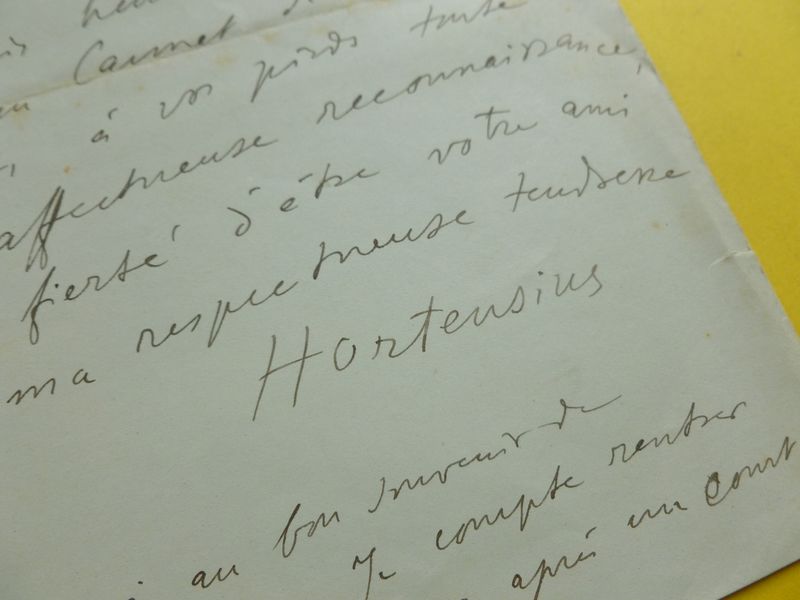 Carnet
à vos pieds toute
affectueuse reconnaissance,
fierté d'être votre ami
ma respectueuse tendresse
Hortensius
au bon souvenir de
Je compte rentrer
après un court